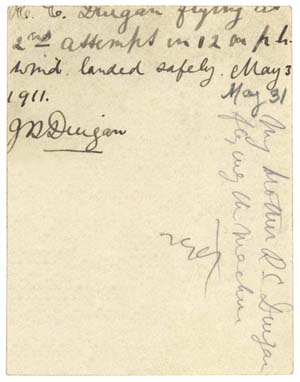 R. C. Duigan flying at
2nd attempt in 12 m p h.
wind. landed safely. May 3
1911.
May 31
J R Duigan
My brother R C Duigan
flying the machine